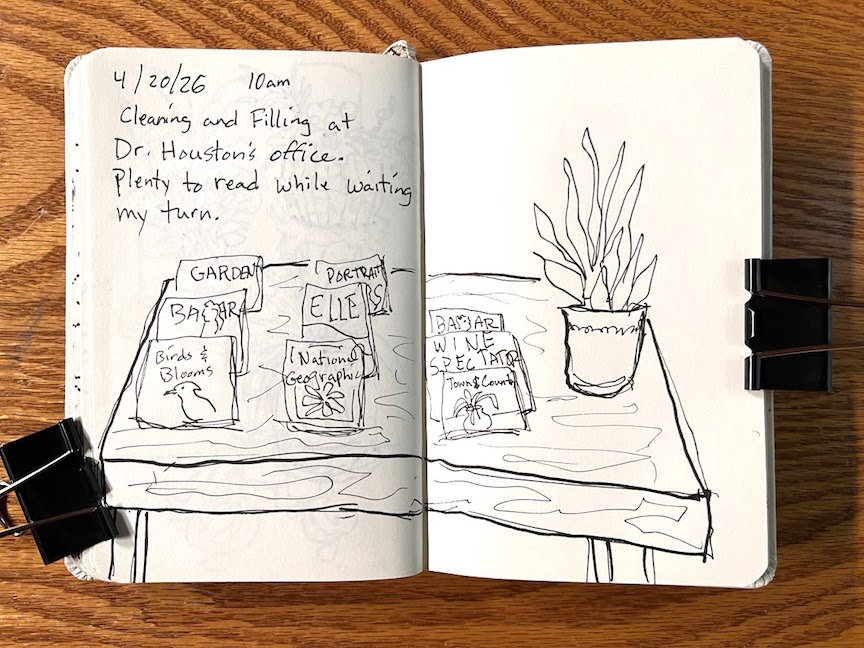 4/20/26 10am
Cleaning and Filling at
Dr. Houston's office.
Plenty to read while waiting
my turn.
GARDEN
BAZAR
Birds &
Blooms
PORTRAIT
ELLE
National
Geographic
BAZAR
WINE
SPECTATOR
Town & Country